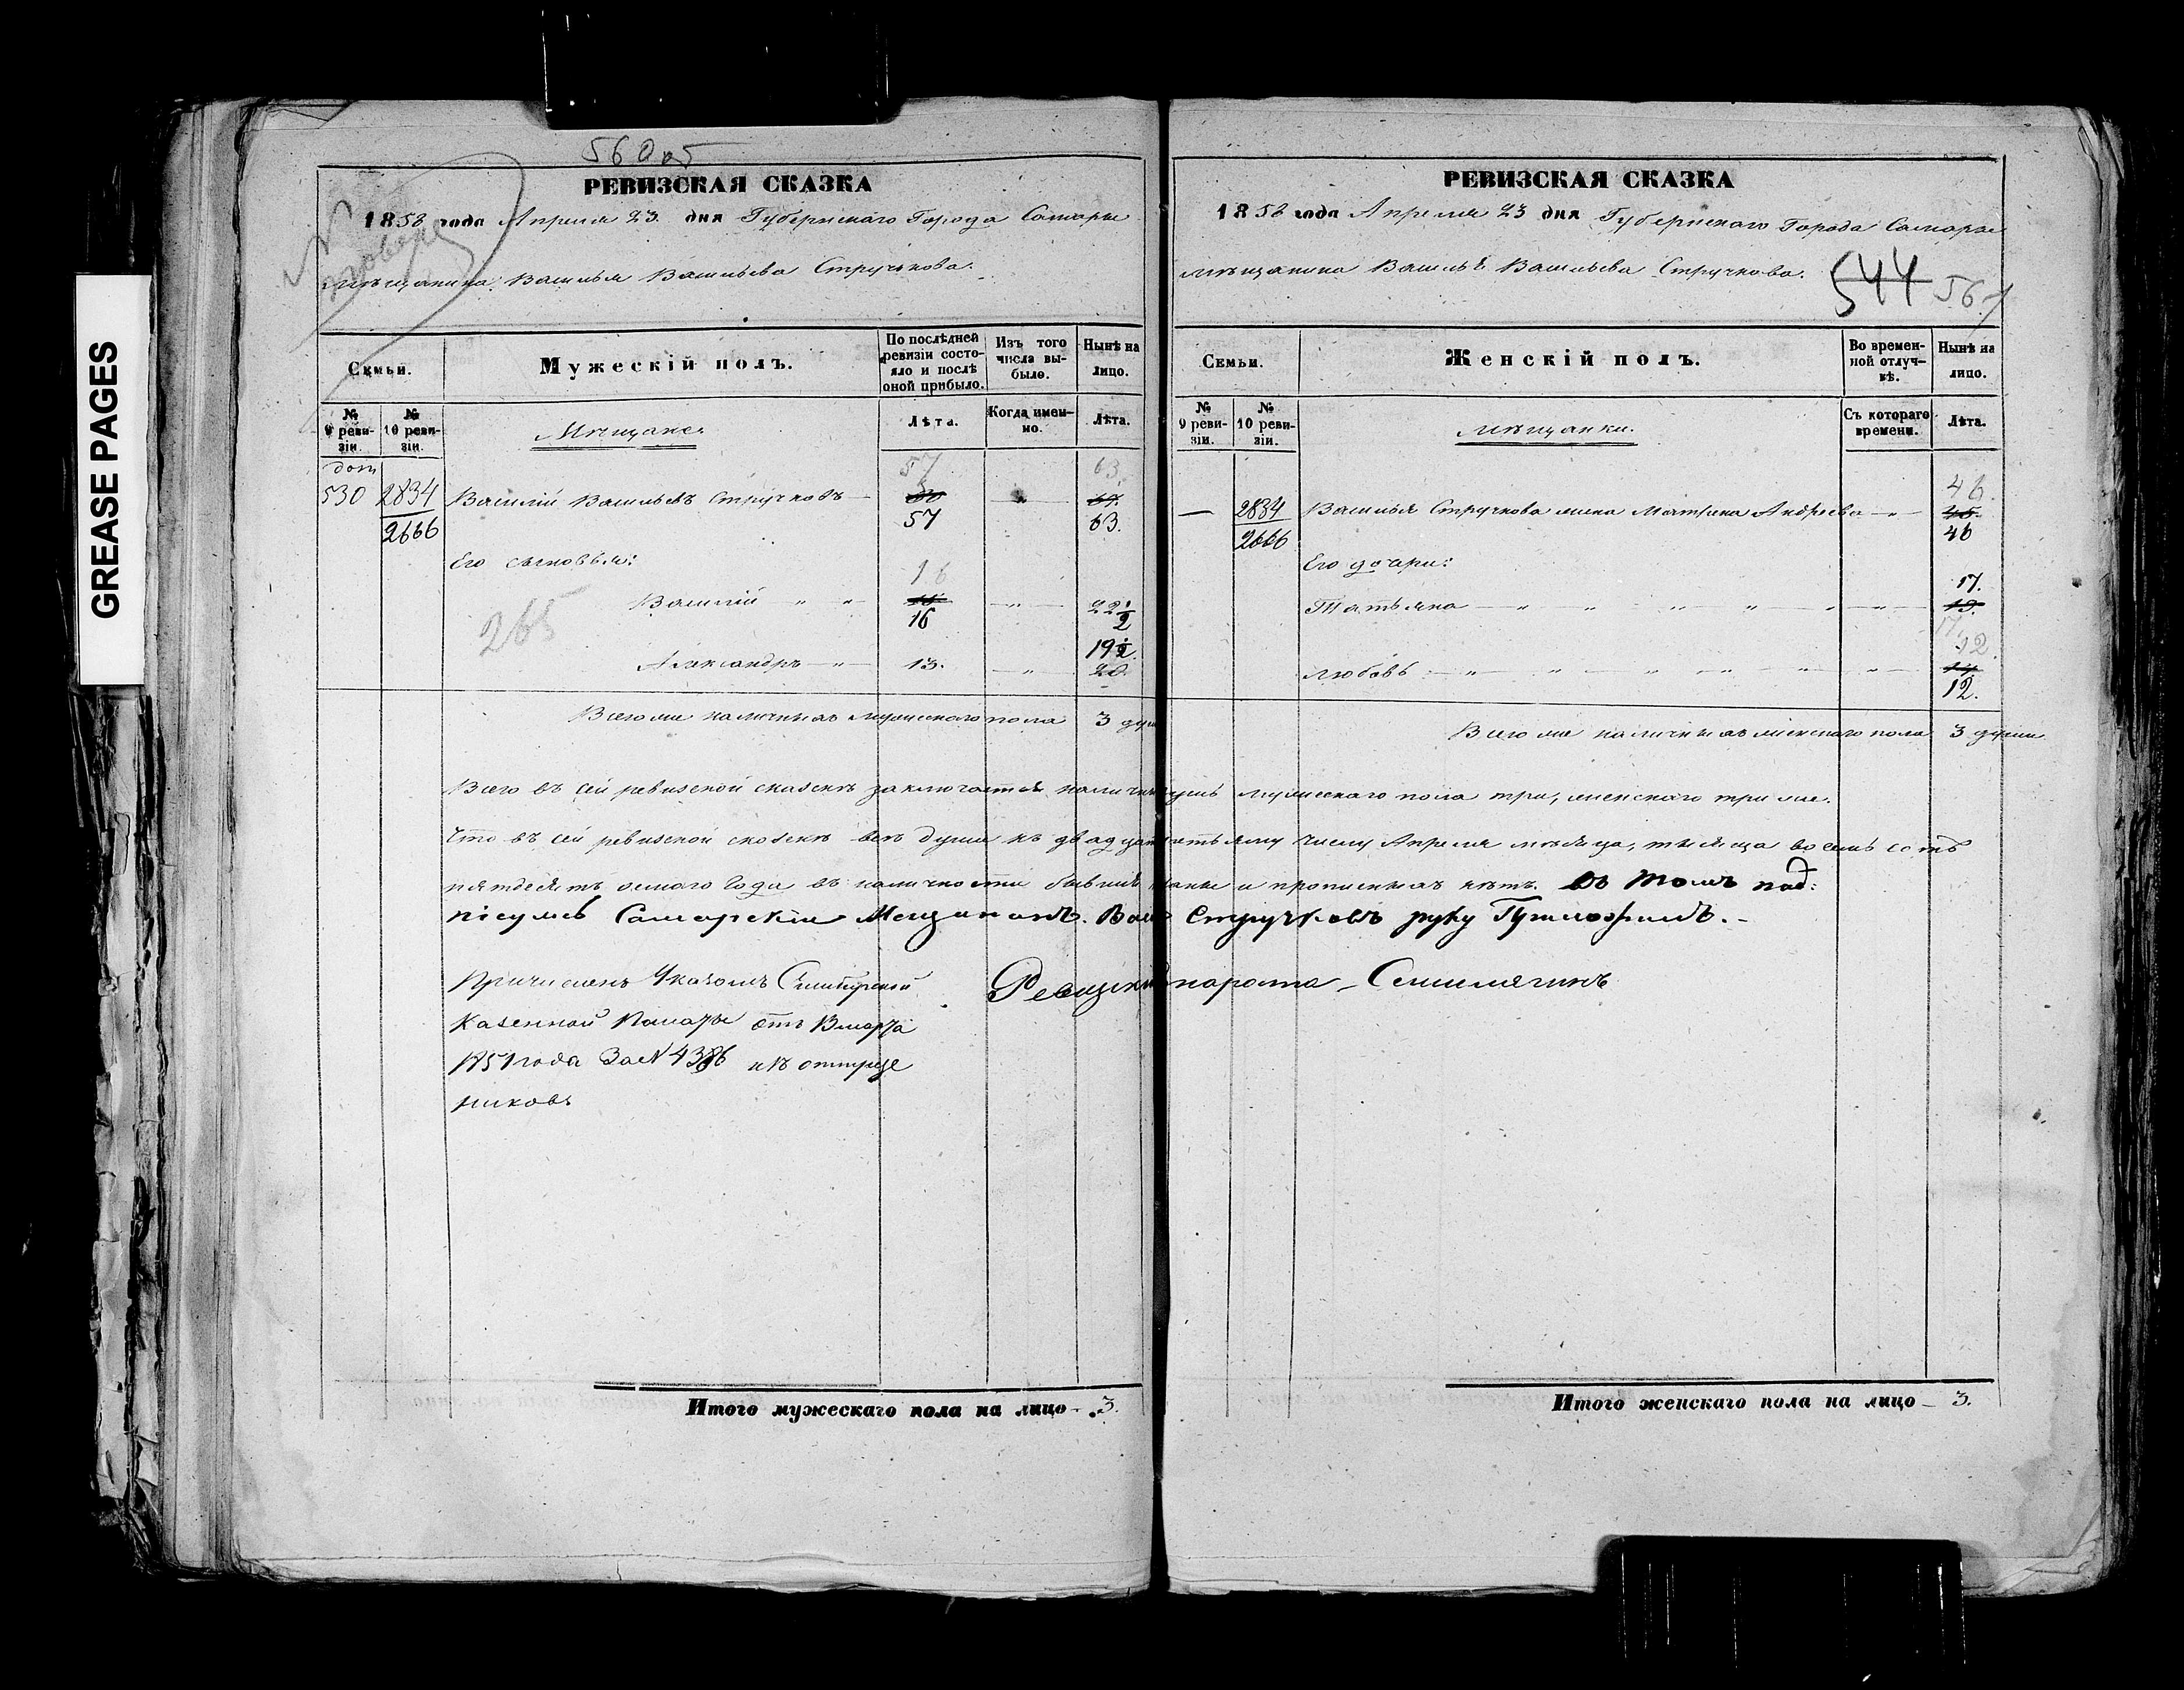 GREASE PAGES
560 об
РЕВИЗСКАЯ СКАЗКА
1858 года Апреля 23 дня Губернскаго Города Самары
мѣщанина Василья Васильева Стручкова.
Семьи.
Мужескій полъ.
По послѣдней ревизіи состояло и послѣ оной прибыло.
Изъ того числа выбыло.
Нынѣ на лицо.
№ 9 ревизіи.
№ 10 ревизіи.
Мѣщане.
Лѣта.
Когда именно.
Лѣта.
доп
57 63
530 2834 Василій Васильевъ Стручковъ — — " —
2666 57 63.
Его сыновья:
16
Василій " " — " — 22½
16
265
19½
Александръ — " — 13. — " — 20
Всего же наличныхъ мужескаго пола 3 душ
РЕВИЗСКАЯ СКАЗКА
1858 года Апреля 23 дня Губернскаго Города Самары
мѣщанина Василья Васильева Стручкова.
544 561
Семьи.
Женскій полъ.
Во временной отлучкѣ.
Нынѣ на лицо.
№ 9 ревизіи.
№ 10 ревизіи.
Мѣщанки.
Съ котораго времени.
Лѣта.
46.
— 2834 Василья Стручкова жена Матрена Андреева — " — 45.
2666 46
Его дочери:
17.
Татьяна — " " " " " — " — 19.
17
12.
Любовь — " — " — " — " — " — " — 14
12.
Всего же наличныхъ женскаго пола 3 души
Всего въ сей ревизской сказкѣ заключается налич душъ мужескаго пола три, женскаго три же.
Что въ сей ревизской сказкѣ всѣ души къ двадцать третьему числу Апреля мѣсяца, тысяща восемь сотъ
пятдесятъ осмаго Года въ наличности бывшіе и прописныхъ нѣтъ. Въ томъ под:
писуюсь Самарскіи Мещининъ. Васи Стручковъ руку Приложилъ. -
Причисленъ Указомъ Симбирской
Казенной Палаты отъ марта
1851 года За № 4386 изъ отпуще
никовъ
Итого мужескаго пола на лицо — 3.
Итого женскаго пола на лицо — 3.